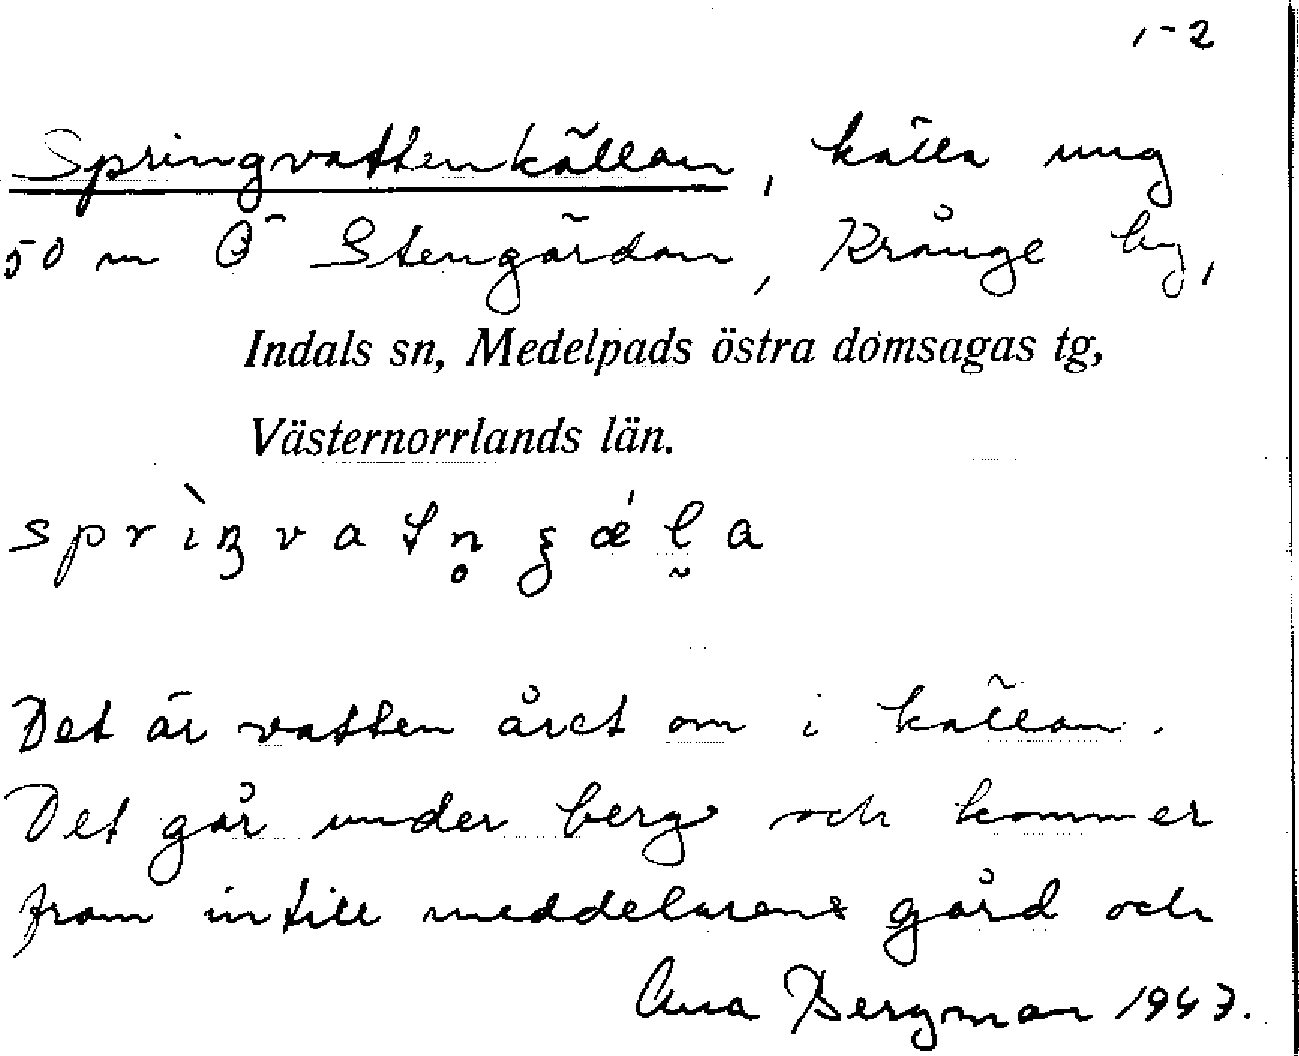 1-2
Springvattenkällan, källa ung
50 m Ö Stengärdan, Krånge by,
Indals sn, Medelpads östra domsagas tg,
Västernorrlands län.
Det är vatten året om i källan.
Det går under berg och kommer
fram intill meddelarens gård och
Bergman 1947.